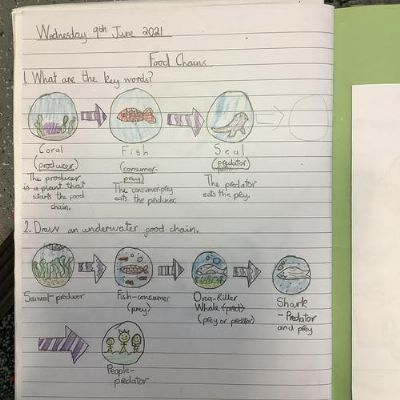 Wednesday 9th June 2021
Food Chains
1. What are the key words?
Coral
(producer)
The producer
is a plant that
starts the food
chain.
Fish
(consumer-
prey)
The consumer-prey
eats the producer.
Seal
(predator)
The predator
eats the prey.
2. Draw an underwater food chain.
Seaweed-producer
Fish-consumer
(prey)
Orca-Killer
Whale (pred)
(prey or predator)
Shark
- Predator
and prey
People-
predator